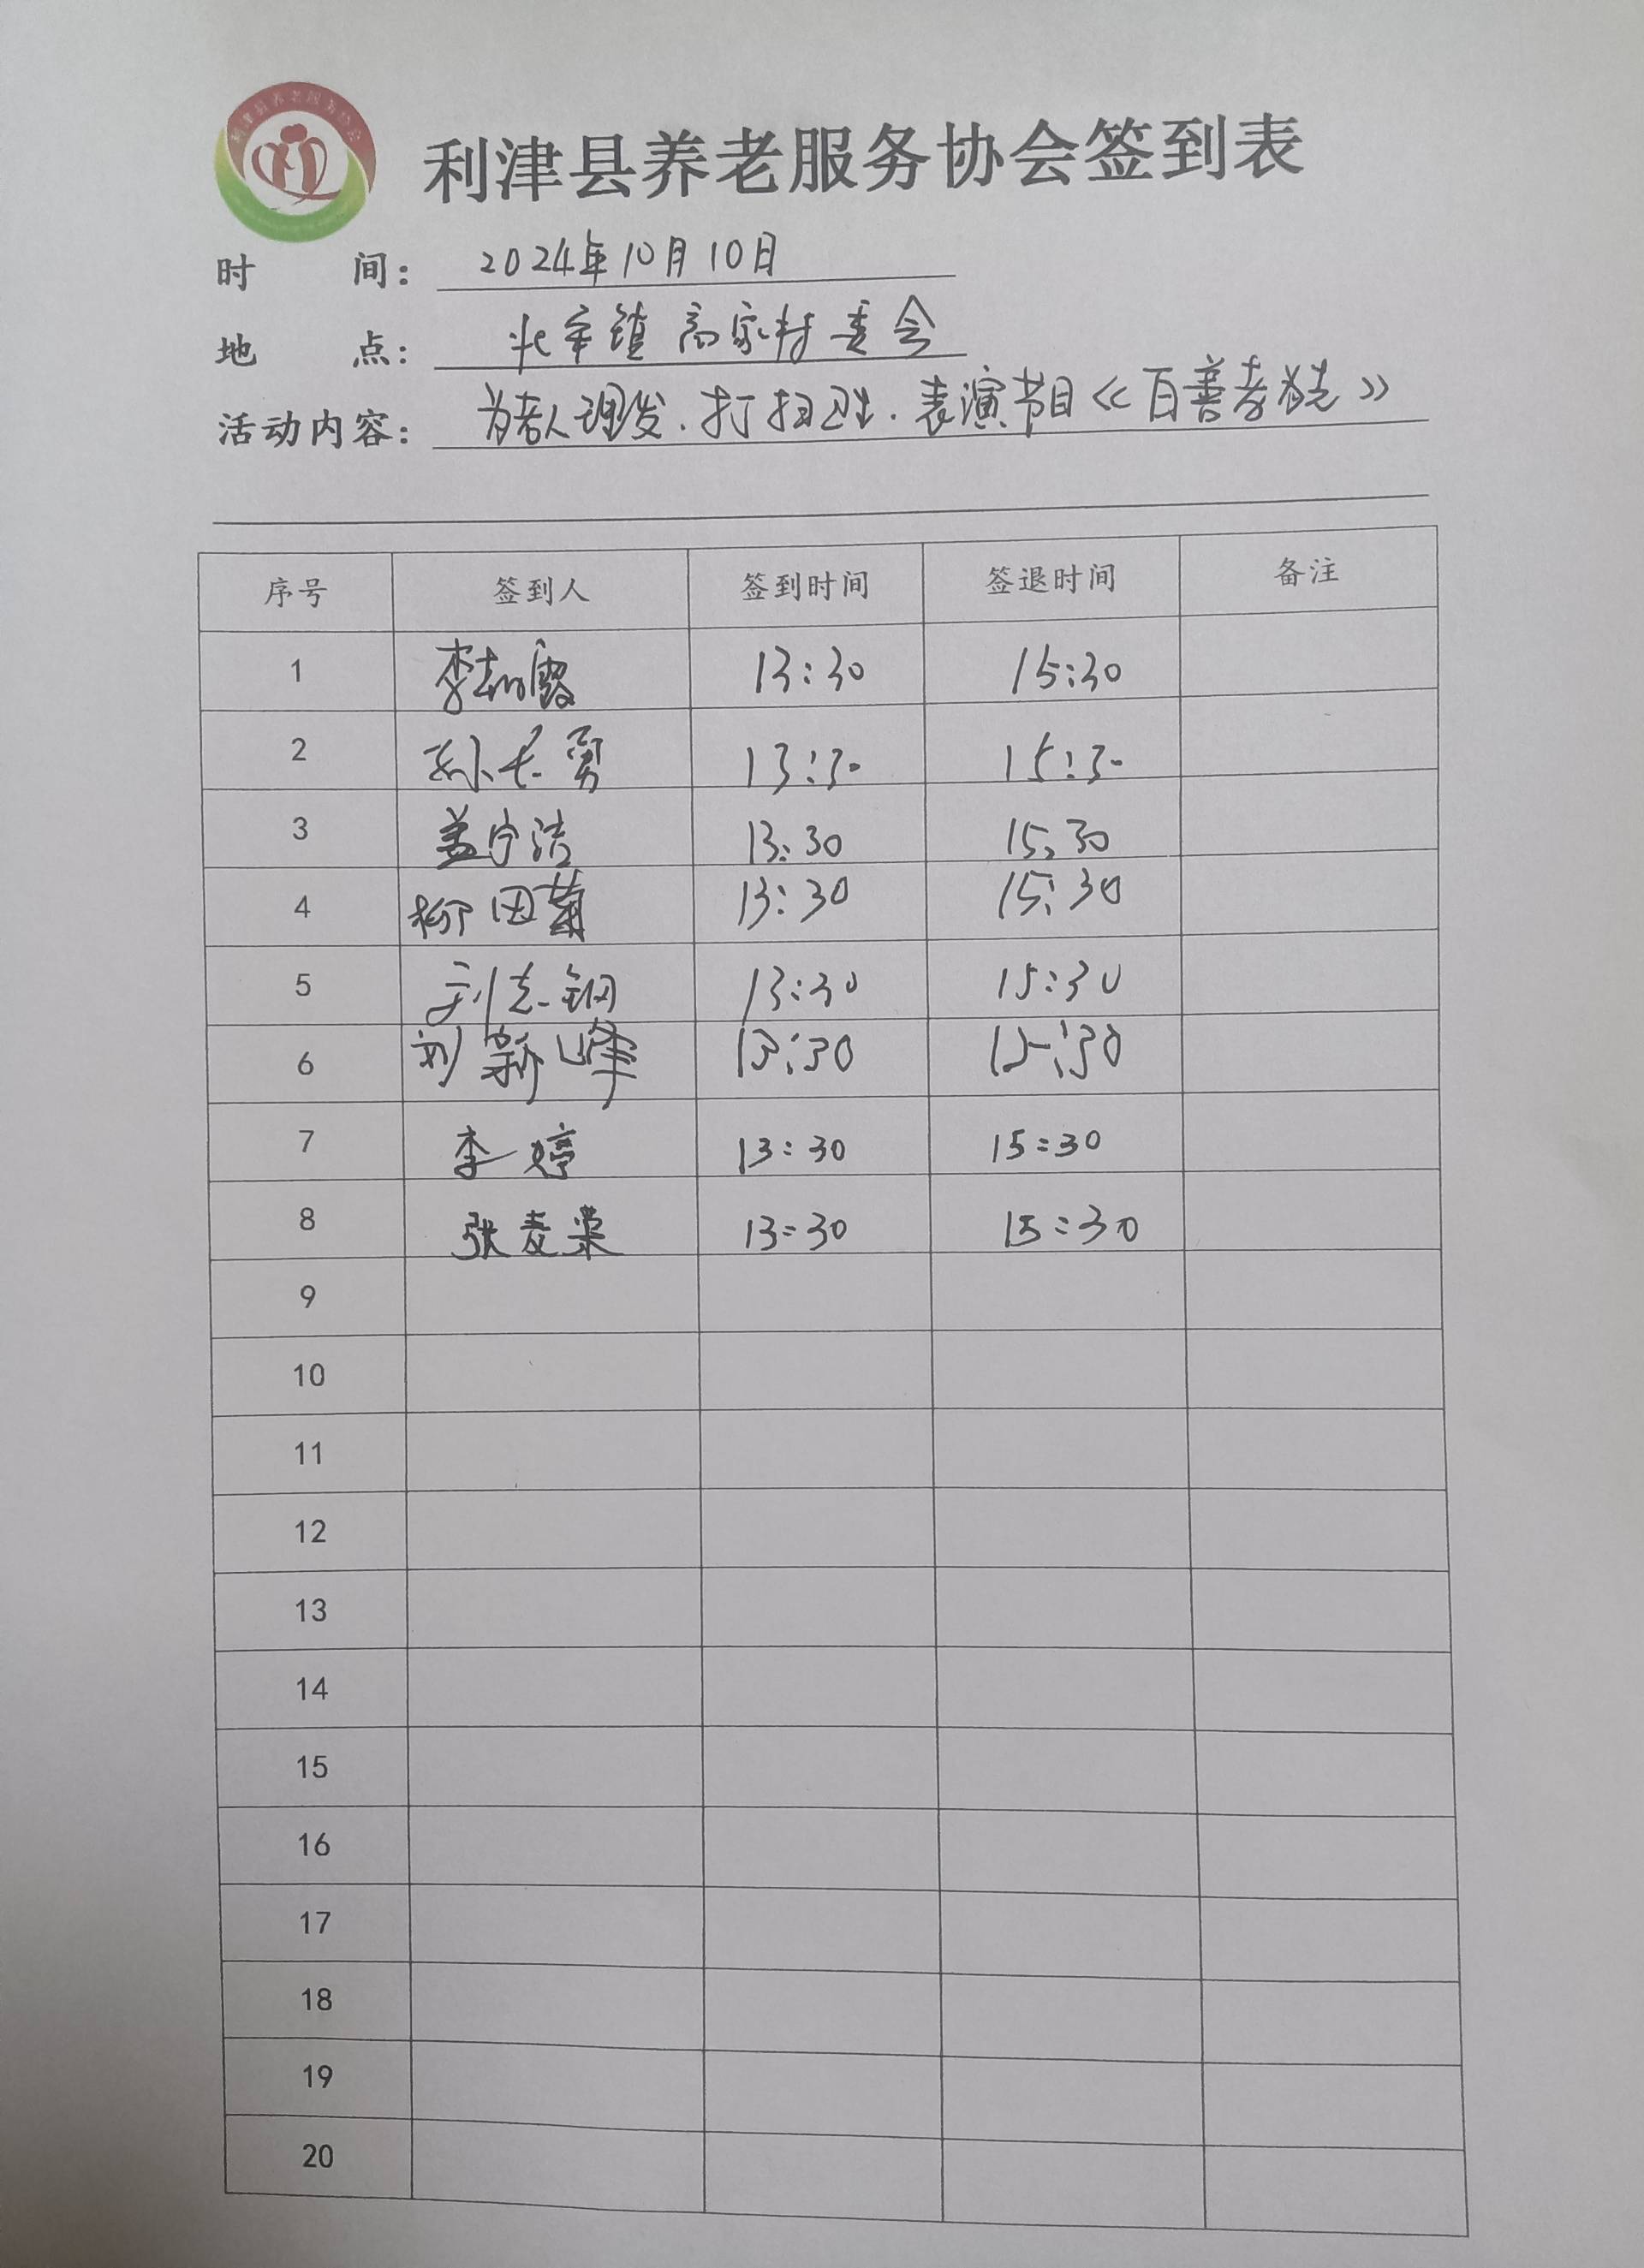 利津县养老服务协会签到表
时 间: 2024年10月10日
地 点: 北宋镇高家村委会
活动内容: 为老人理发、打扫卫生、表演节目《百善孝为先》
序号 签到人 签到时间 签退时间 备注
1 李 13:30 15:30
2 孙长勇 13:30 15:30
3 盖宁洁 13:30 15:30
4 柳田菊 13:30 15:30
5 刘志钢 13:30 15:30
6 刘新峰 13:30 15:30
7 李婷 13:30 15:30
8 张麦荣 13:30 15:30
9
10
11
12
13
14
15
16
17
18
19
20